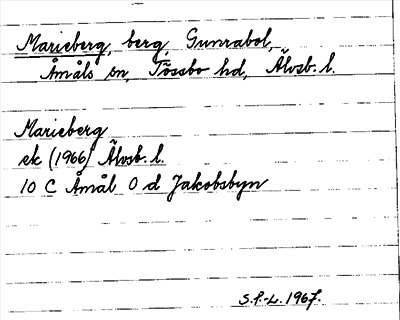 Marieberg, berg, Gunnabol,
Åmåls sn, Tössbo hd, Älvsb. l.
Marieberg
ek (1966) Älvsb. l.
10 C Åmål O d Jakobsbyn
S.F.-L. 1967.